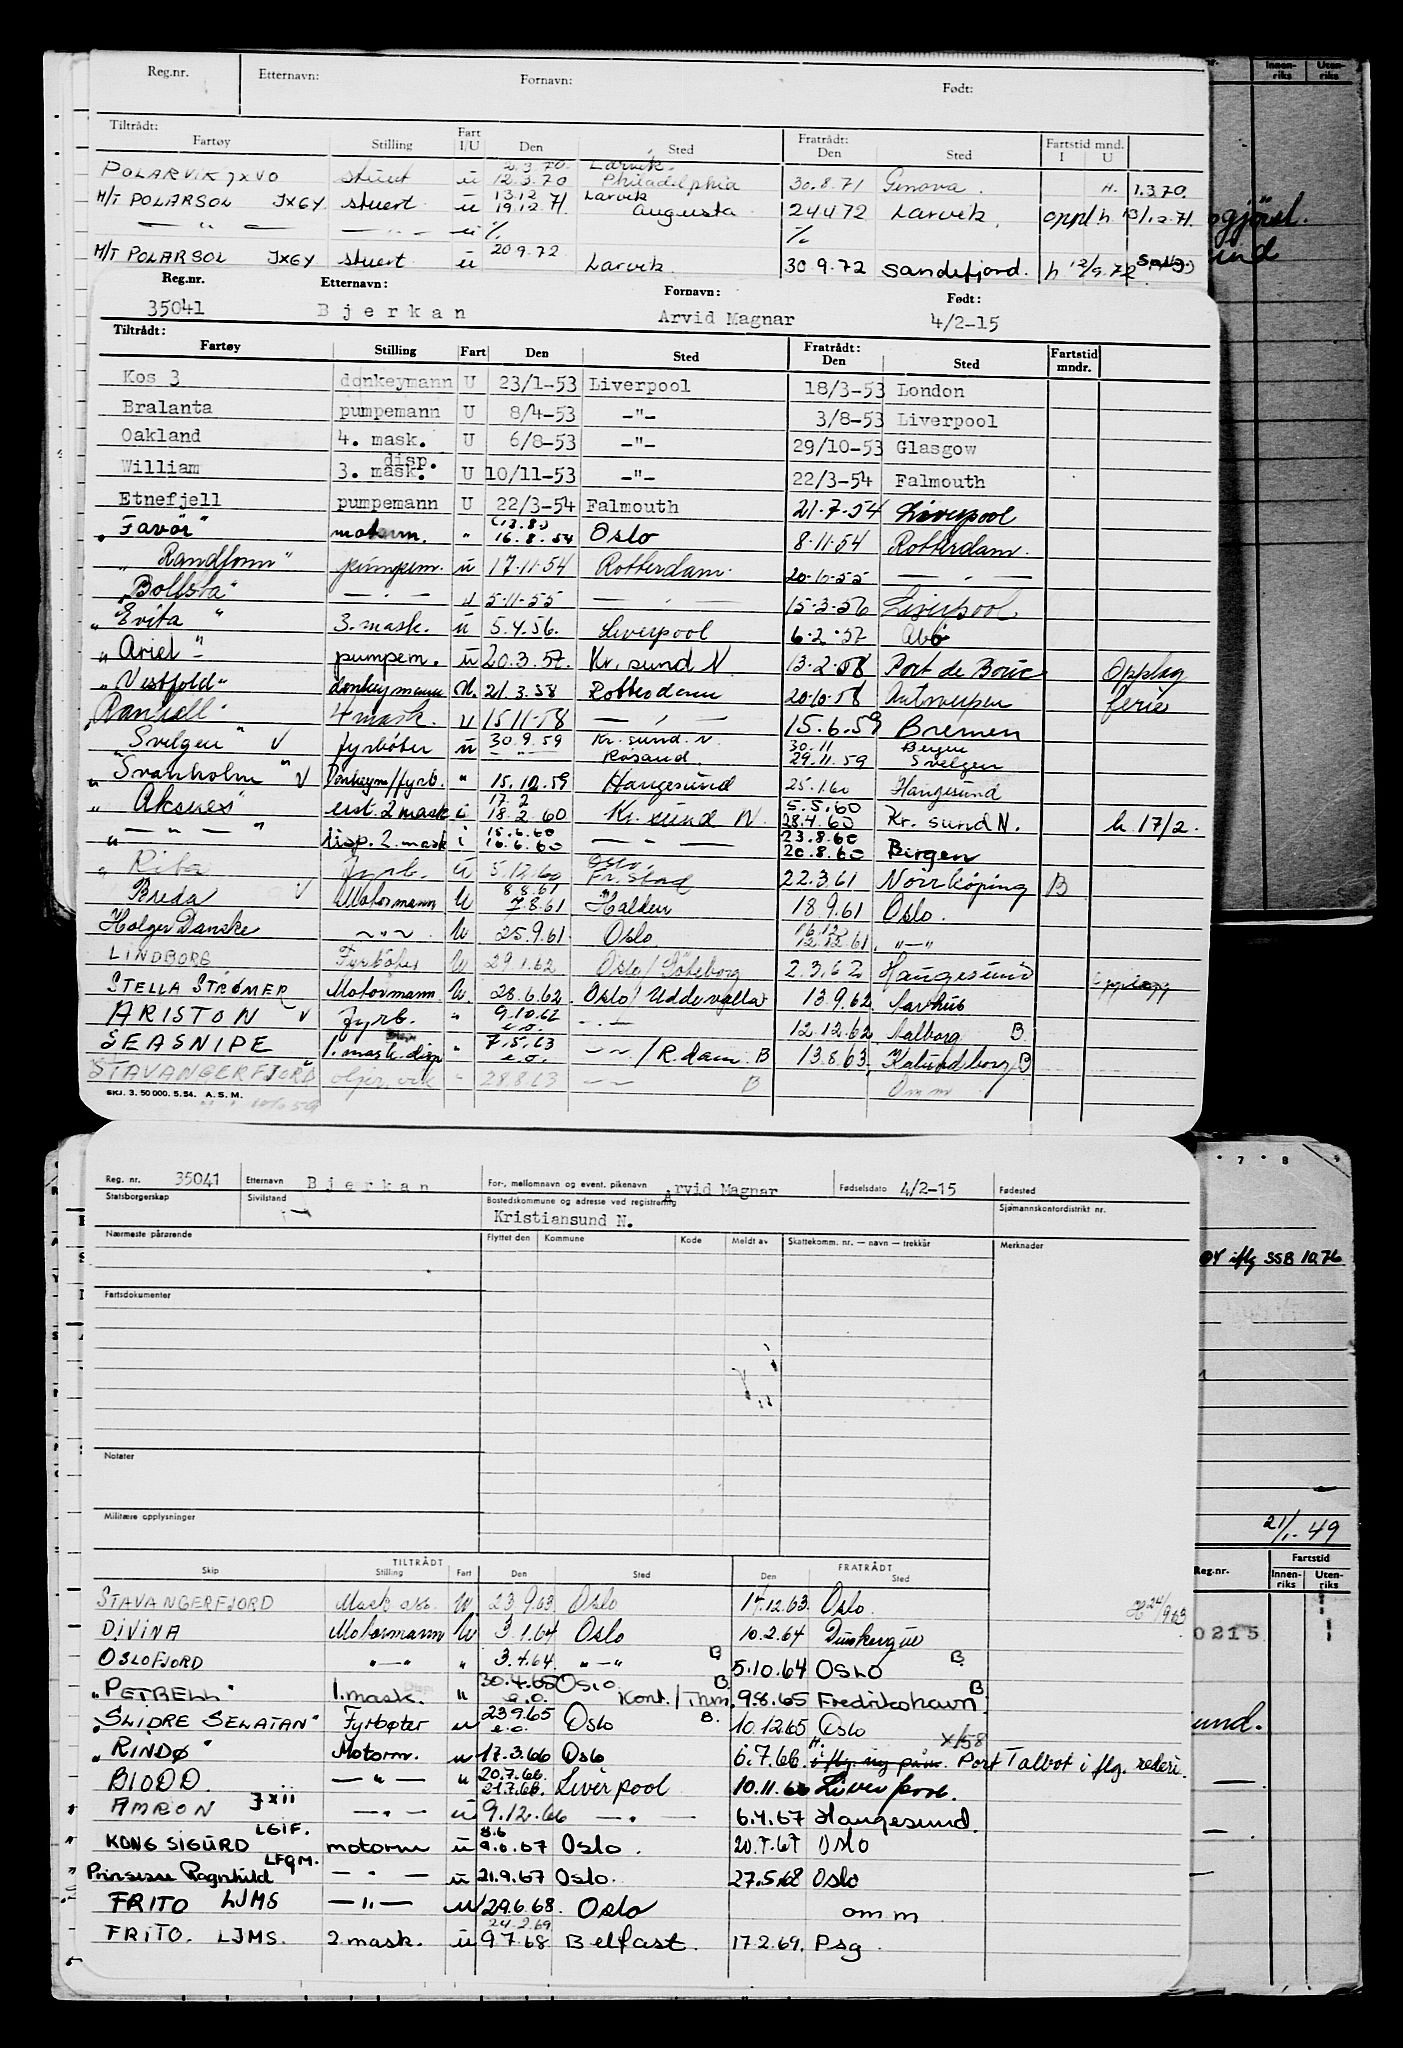 Reg.nr. Etternavn: Fornavn: Født:
Tiltrådt: Fratrådt: Fartstid mnd.
Fartøy Stilling Fart I/U Den Sted Den Sted I U
2.3.70 Larvik.
POLARVIK JXVO stuert u 12.3.70 Philadelphia 30.8.71 Genova. H. 1.3.70.
13.12 Larvik
M/T POLARSOL JXGY stuert u 19.12.71 Augusta 24472 Larvik, oppl h 13/12.71.
— " — — " — u % %
M/T POLARSOL JXGY stuert ü 20 9.72 Larvik. 30.9.72 Sandefjord. h 12/9.72
Reg.nr. Etternavn: Fornavn: Født:
35041 Bjerkan Arvid Magnar 4/2-15
Tiltrådt: Fratrådt: Fartstid mndr.
Fartøy Stilling Fart Den Sted Den Sted
Kos 3 donkeymann U 23/1-53 Liverpool 18/3-53 London
Bralanta pumpemann U 8/4-53 -"- 3/8-53 Liverpool
Oakland 4. mask. U 6/8-53 -"- 29/10-53 Glasgow
disp.
William 3. mask. U 10/11-53 -"- 22/3-54 Falmouth
Etnefjell pumpemann U 22/3-54 Falmouth 21.7.54 Liverpool
(13.8.)
"Favör" motorm. " 16.8.54 Oslo 8.11.54 Rotterdam.
"Randfonn" pumpem. u 17.11.54 Rotterdam. 20.10.55 — " —
"Bollsta" — " — u 5.11.55 — " — 15.3.56 Liverpool.
"Evita" 3. mask. ü 5.4.56. Liverpool 6.2.57 Abö
"Ariel" pumpem. u 20.3.57. Kr. sund N 13.2.58 Port de Bouc Opplag
"Vestfold" donkeymann U. 21.3.58 Rotterdam 20.10.58 Antwerpen ferie
"Ranhell" 4 mask. u 15.11.58 — " — 15.6.59 Bremen
"Svelgen" V fyrbøter u 30.9.59 Kr. sund. N. 30.11 Bergen
— " — Rosand. 29.11.59 Svelgen
"Svanholm" V Donkeym/fyrb. " 15.12.59 Haugesund 25.1.60 Haugesund
17.2 5.5.60
"Aksnes" erst. 2 mask i 18.2.60 Kr. sund N. 28.4.60 Kr. sund N. h. 17/2.
15.6.60 23.8.60
" — " — " disp. 2. mask i 16.6.60 — " — 20.8.60 Bergen
Oslo.
Fyrb. U 5.12.60 Fr.stad 22.3.61 Norrköping B
8.8.61
Breda V Motormann U 7.8.61 Halden 18.9.61 Oslo.
16.12
Holger Danske ~"~ U 25.9.61 Oslo 12.12.61 "—"
LINDBORG Fyrbøter U 29 1.62 Oslo/Göteborg 2.3.62 Haugesund Opplagg
STELLA STRØMER Motormann U. 28.6.62. Oslo/Uddevalla 13.9.62 Aarhus
ARISTON V fyrb. " 9.10.62 e.o. — " — 12.12.62 Aalborg B.
SEASNIPE 1. mask. disp " 7.5.63 e.o. —"—/R.dam. B 13.8.63. Kalundborg B
STAVANGERFJORD " 28.8.63 —"— B Omm
SKJ. 3. 50 000. 5.54. A.S.M.
Reg. nr. 35041 Etternavn Bjerkan For-, mellomnavn og event. pikenavn Arvid Magnar Fødselsdato 4/2-15 Fødested
Statsborgerskap Sivilstand Bostedskommune og adresse ved registrering Sjømannskontordistrikt nr.
Kristiansund N.
Nærmeste pårørende Flyttet den Kommune Kode Meldt av Skattekomm. nr. — navn — trekkår Merknader
Fartsdokumenter
Notater
Militære opplysninger
TILTRÅDT FRATRÅDT
Skip Stilling Fart Den Sted Den Sted
STAVANGERFJORD Mask ass. U 23 9.63 Oslo 14.12.63. Oslo. H 24/9.63
DIVINA Motormann U 3.1.64 Oslo 10.2.64 Dunkerque
OSLOFJORD "—" " 3.4.64 "—" B 5.10.64 OSLO B.
"PETRELL" 1. mask. " 30.4.65 e.o. Oslo Kont./Thm. B 9.8.65 Fredrikshavn B
"SLIDRE SELATAN" Fyrbøter u 23 9.65 e.o. Oslo B. 10.12.65 Oslo
"RINDØ" Motorm. u 17.3.66 Oslo 6.7.66 Port Talbot i flg. rederi.
20.7.66.
BIODD. — " — u 21.7.66. Liverpool 10.11.66 Liverpool.
AMRON JXII — " — u 9.12.66 — " — 6.4.67 Haugesund.
8.6
KONG SIGURD LGIF. motorm u 9.6.67 Oslo. 20.7.67 Oslo
"Prinsesse Ragnhild LFQM. — " — u 21.9.67 Oslo. 27.5.68 Oslo
FRITO LJMS —"— u 29.6.68 Oslo omm
24.2.69
FRITO. LJMS. 2. mask. u 9.7.68 Belfast. 17.2.69. Psg.
Innen-riks Uten-riks
und
iflg SSB 10.76
21/1.49
eg.nr. Fartstid
Innen-riks Uten-riks
0215
und.